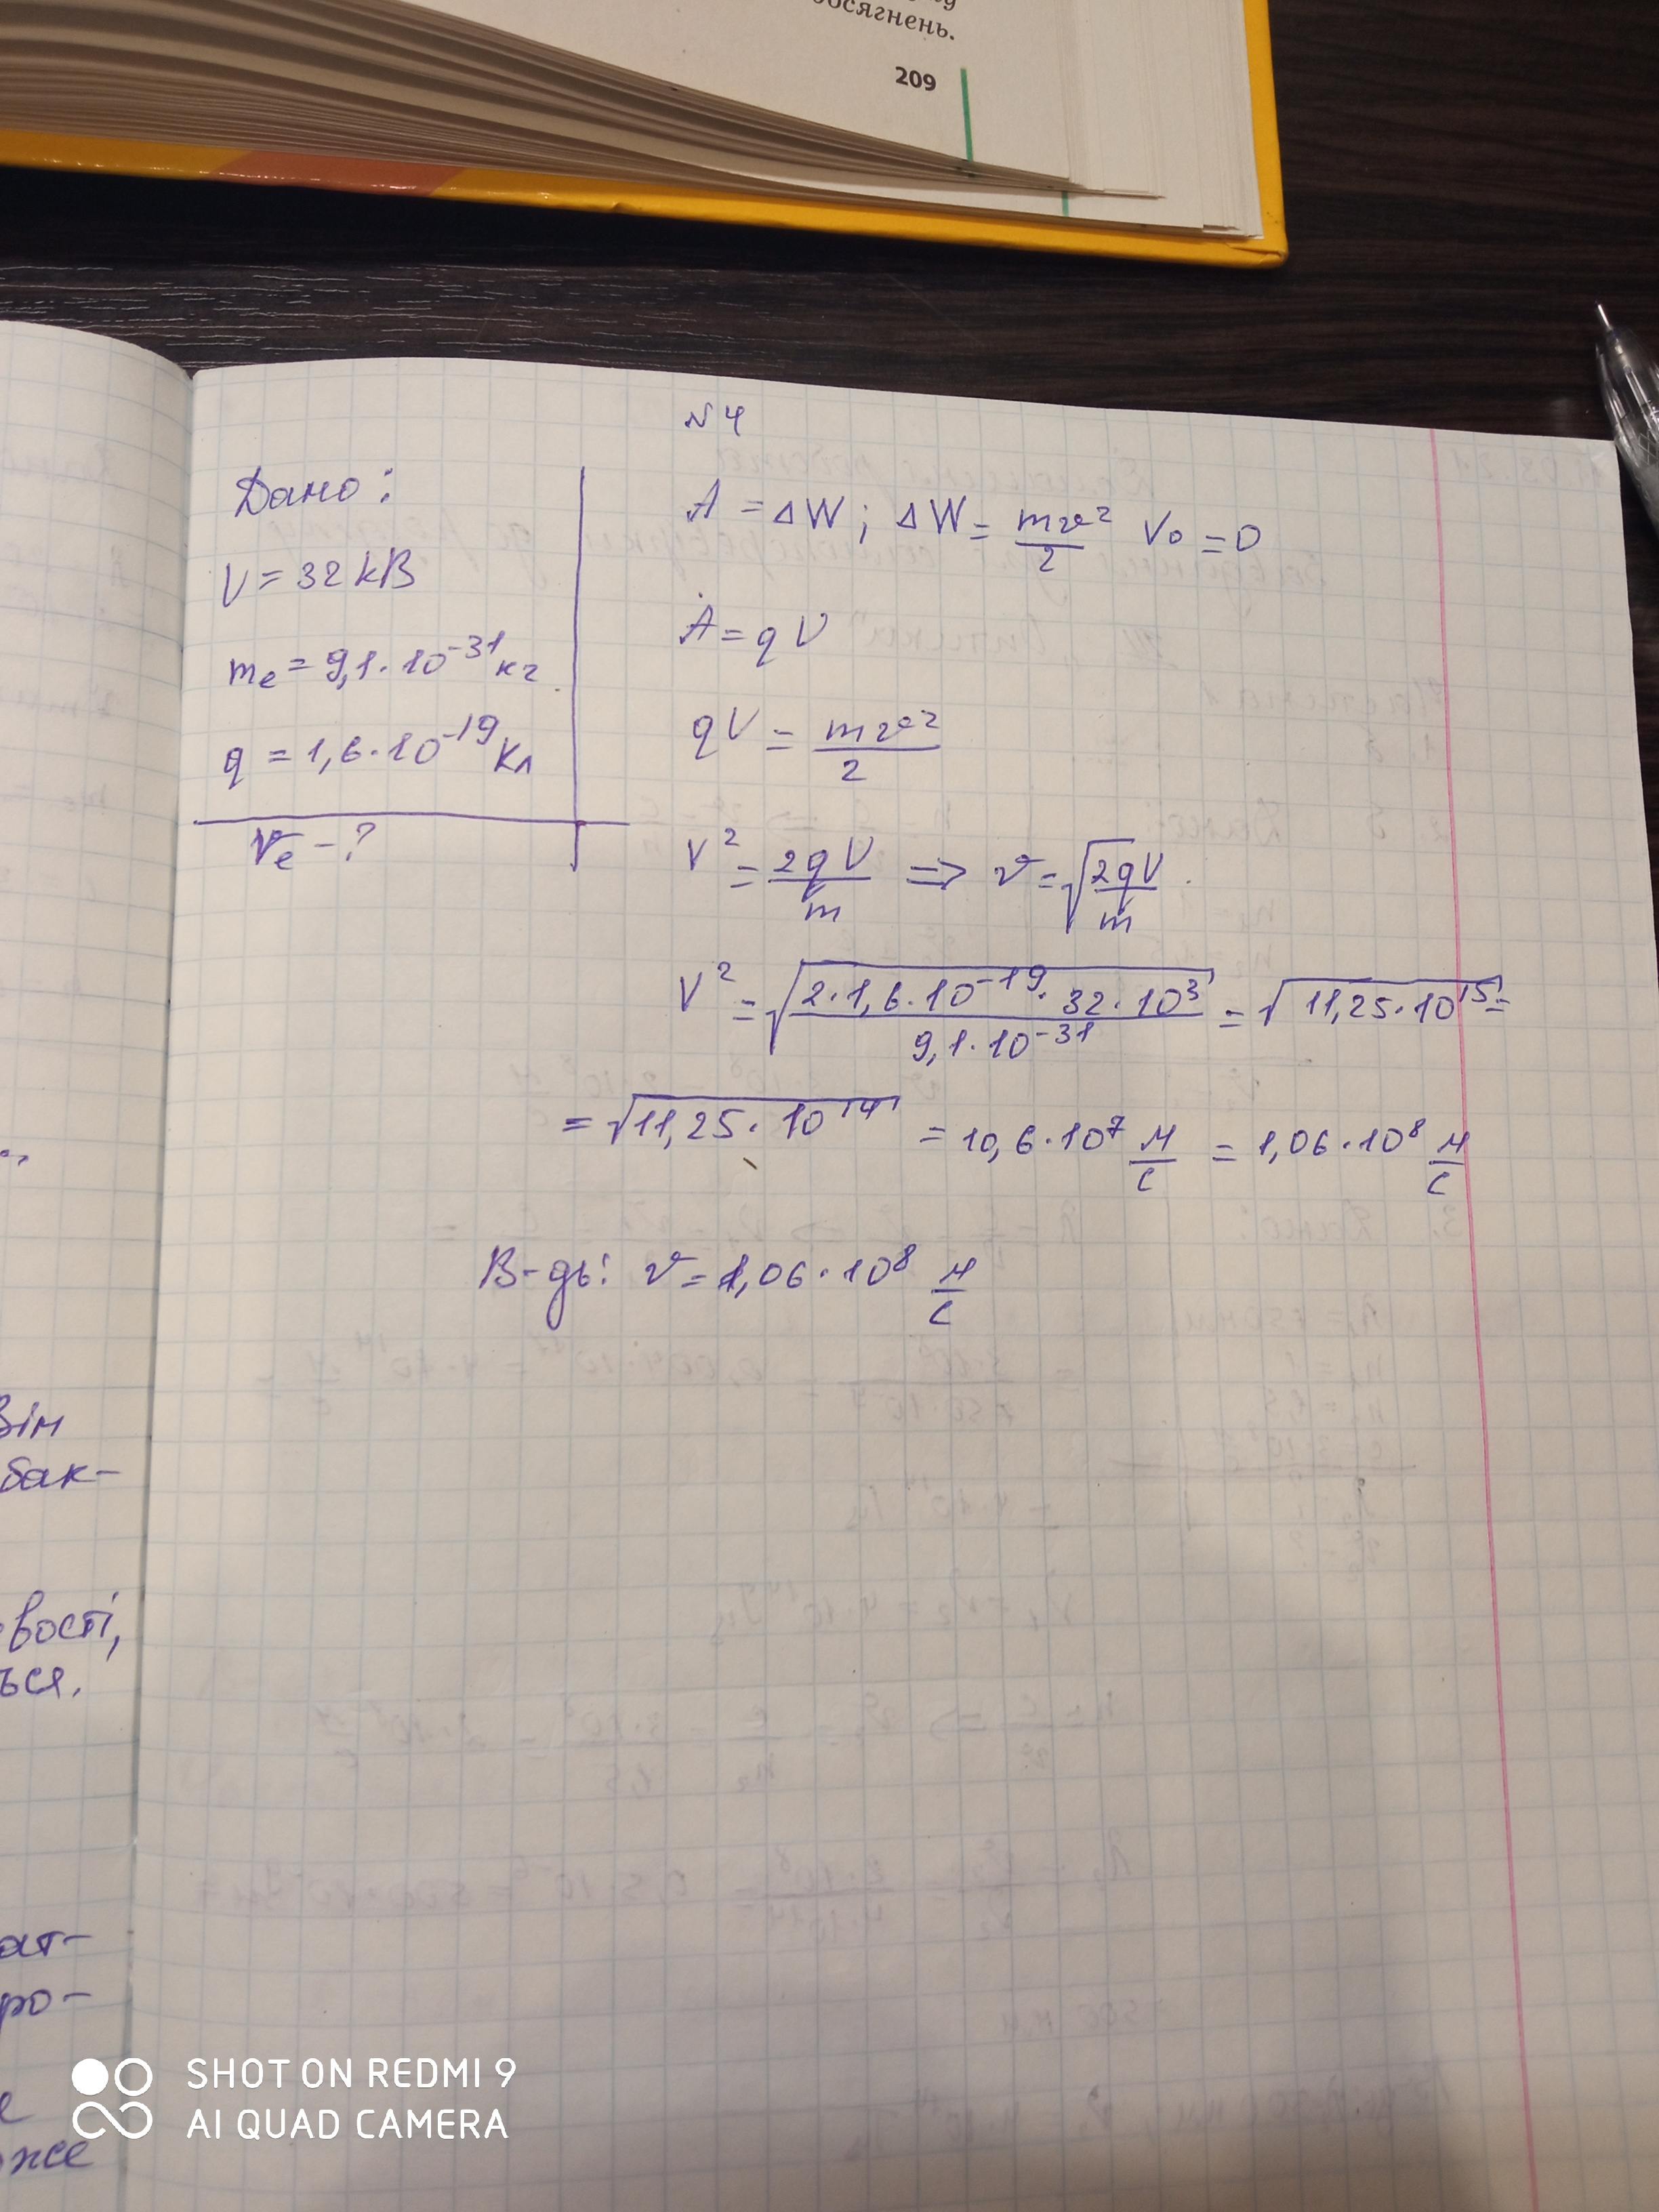 осягнень.
209
N 4
Дано:
U = 32 кВ
mₑ = 9,1·10⁻³¹ кг
q = 1,6·10⁻¹⁹ Кл
Vₑ - ?
A = ΔW; ΔW = mv²/2 V₀ = 0
A = qU
qU = mv²/2
V² = 2qU/m => v = √(2qU/m).
V² = √(2·1,6·10⁻¹⁹·32·10³/9,1·10⁻³¹) = √(11,25·10¹⁵) =
= √(11,25·10¹⁴) = 10,6·10⁷ м/с = 1,06·10⁸ м/с
В-дь: v = 1,06·10⁸ м/с
Він
бак-
вості,
ться.
ат-
ро-
оже
SHOT ON REDMI 9
AI QUAD CAMERA